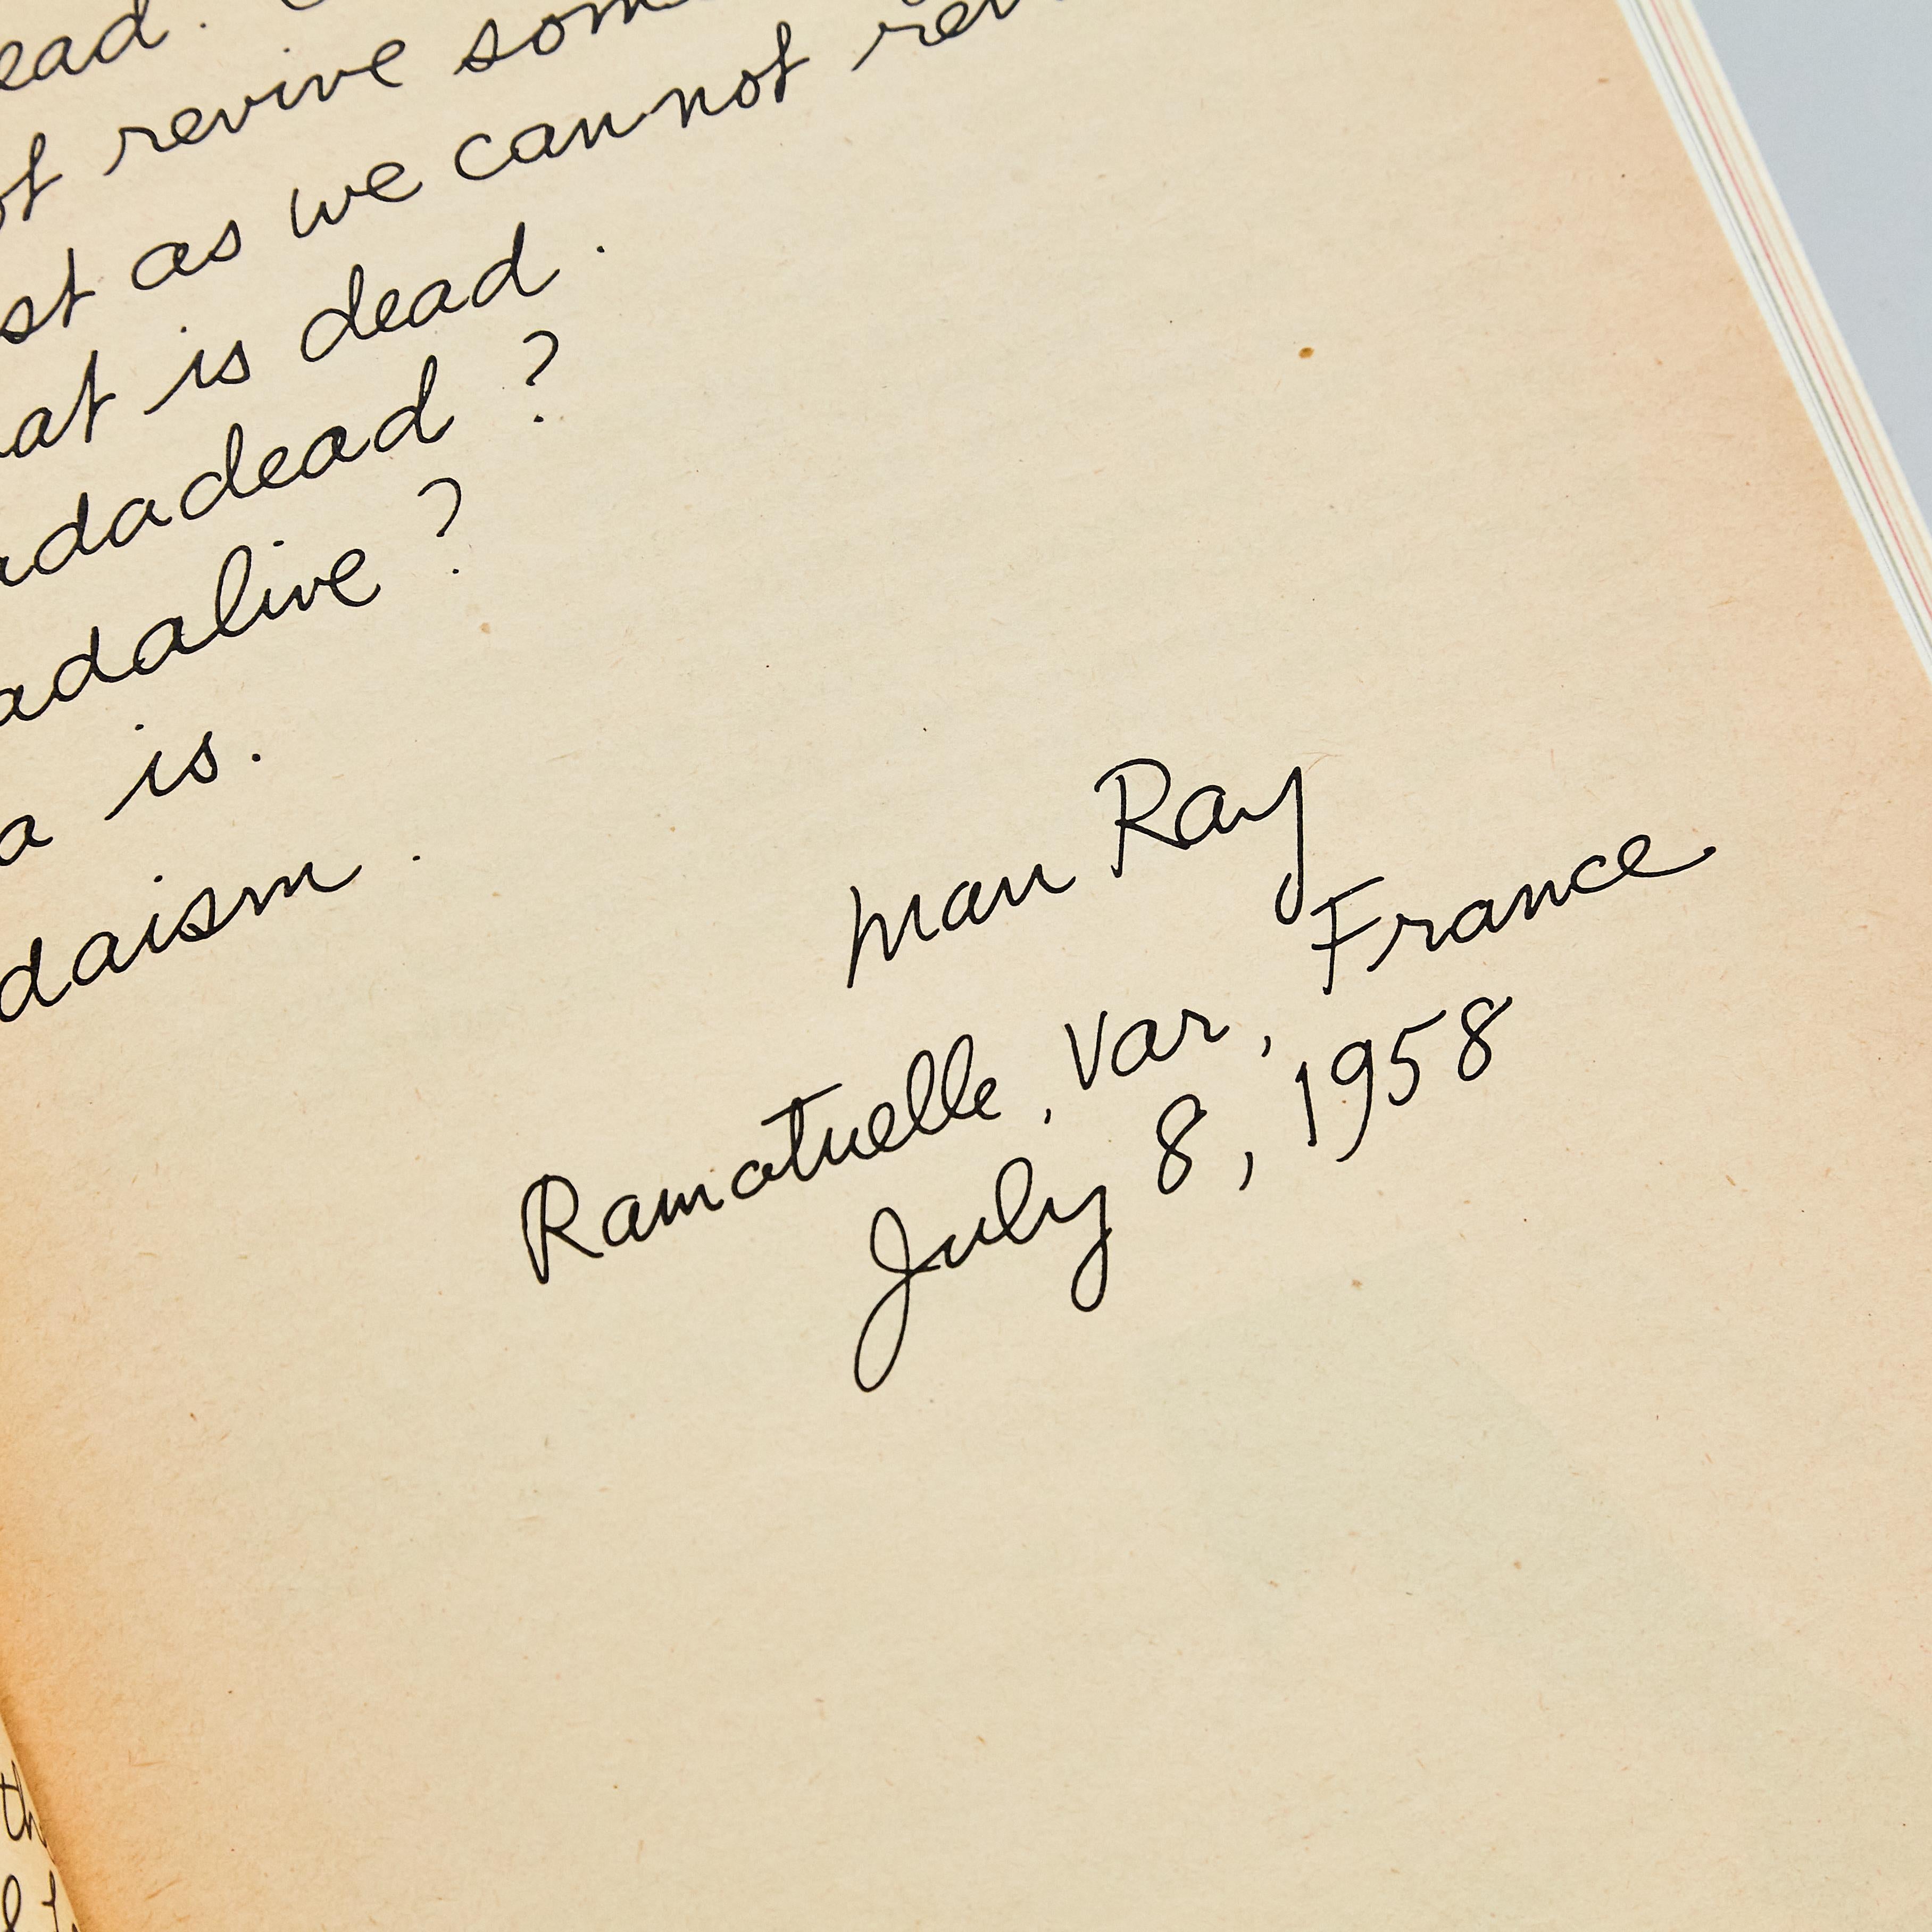 ead.
revive som
st as we cannot re
at is dead.
dadadead?
adalive?
a is.
daism.
Man Ray
Ramatuelle, Var, France
July 8, 1958
th